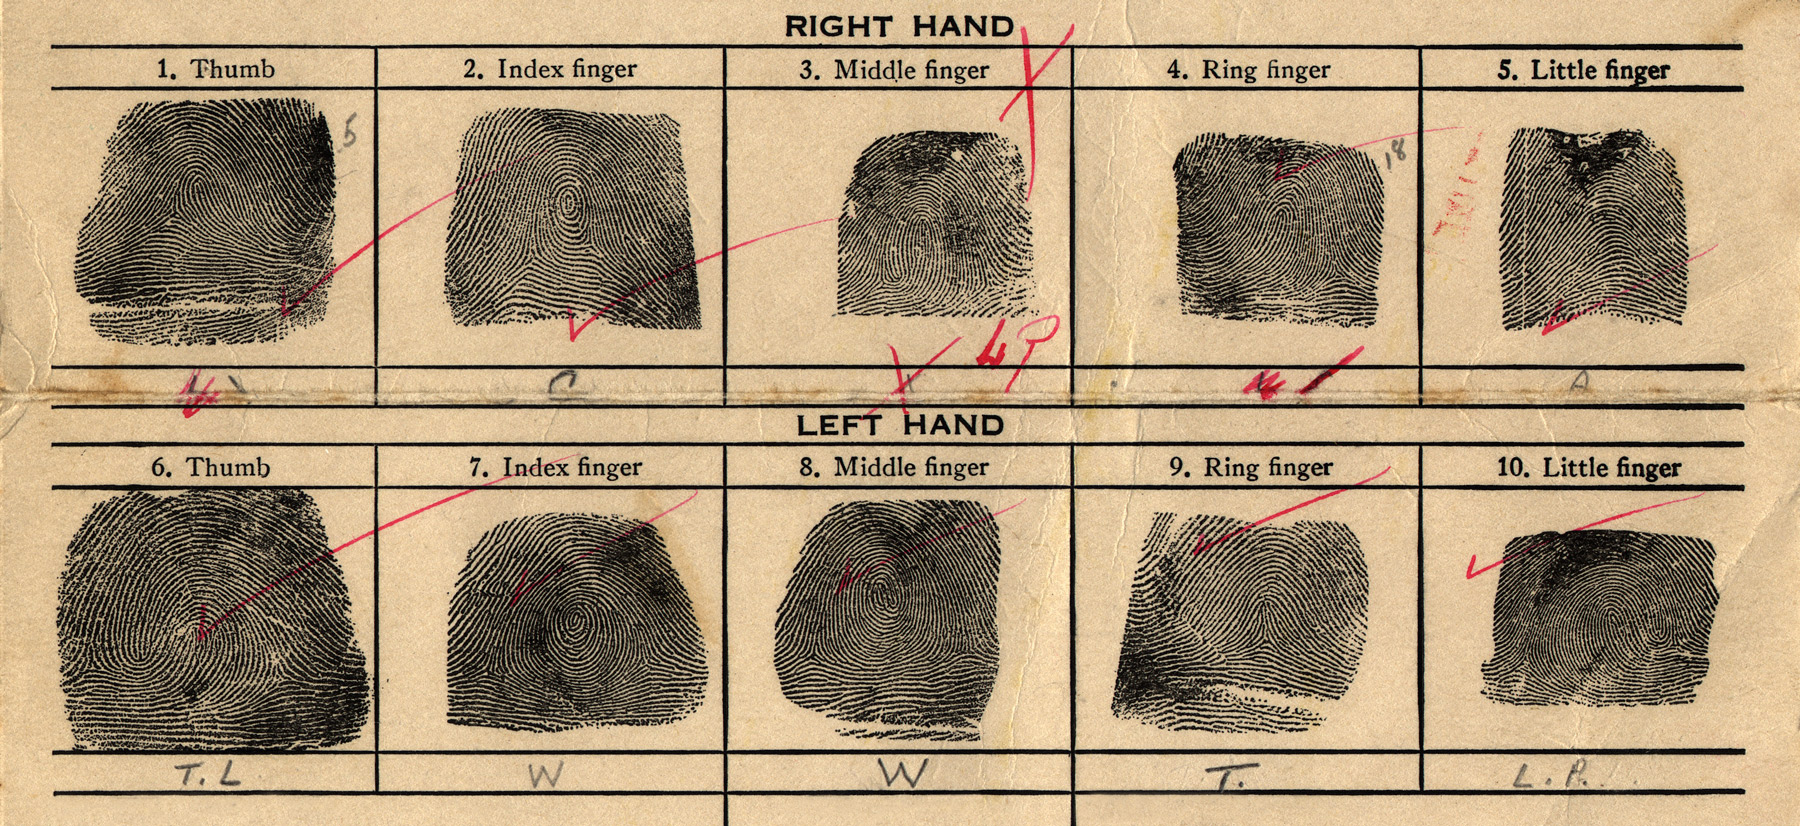 RIGHT HAND
1. Thumb 2. Index finger 3. Middle finger 4. Ring finger 5. Little finger
5 18
C A
LP
LEFT HAND
6. Thumb 7. Index finger 8. Middle finger 9. Ring finger 10. Little finger
T. L W W T. L. P.